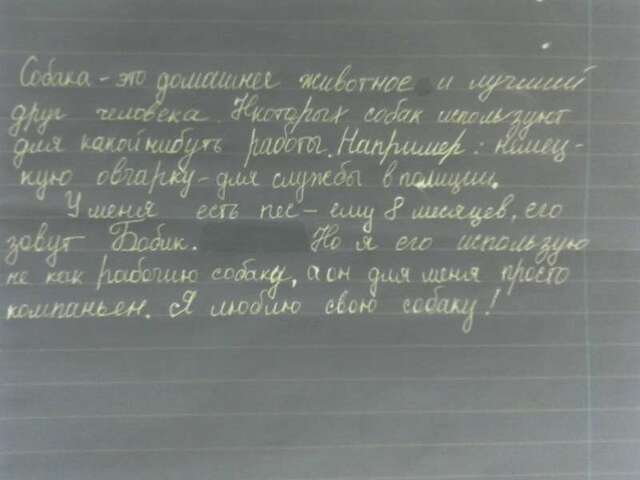 Собака - это домашнее животное и лучший
друг человека. Некоторых собак используют
для какойнибуть работы. Например: немец-
кую овчарку - для службы в полиции.
У меня есть пес - ему 8 месяцев, его
зовут Бобик. Но я его использую
не как рабочию собаку, а он для меня просто
компаньен. Я люблю свою собаку!